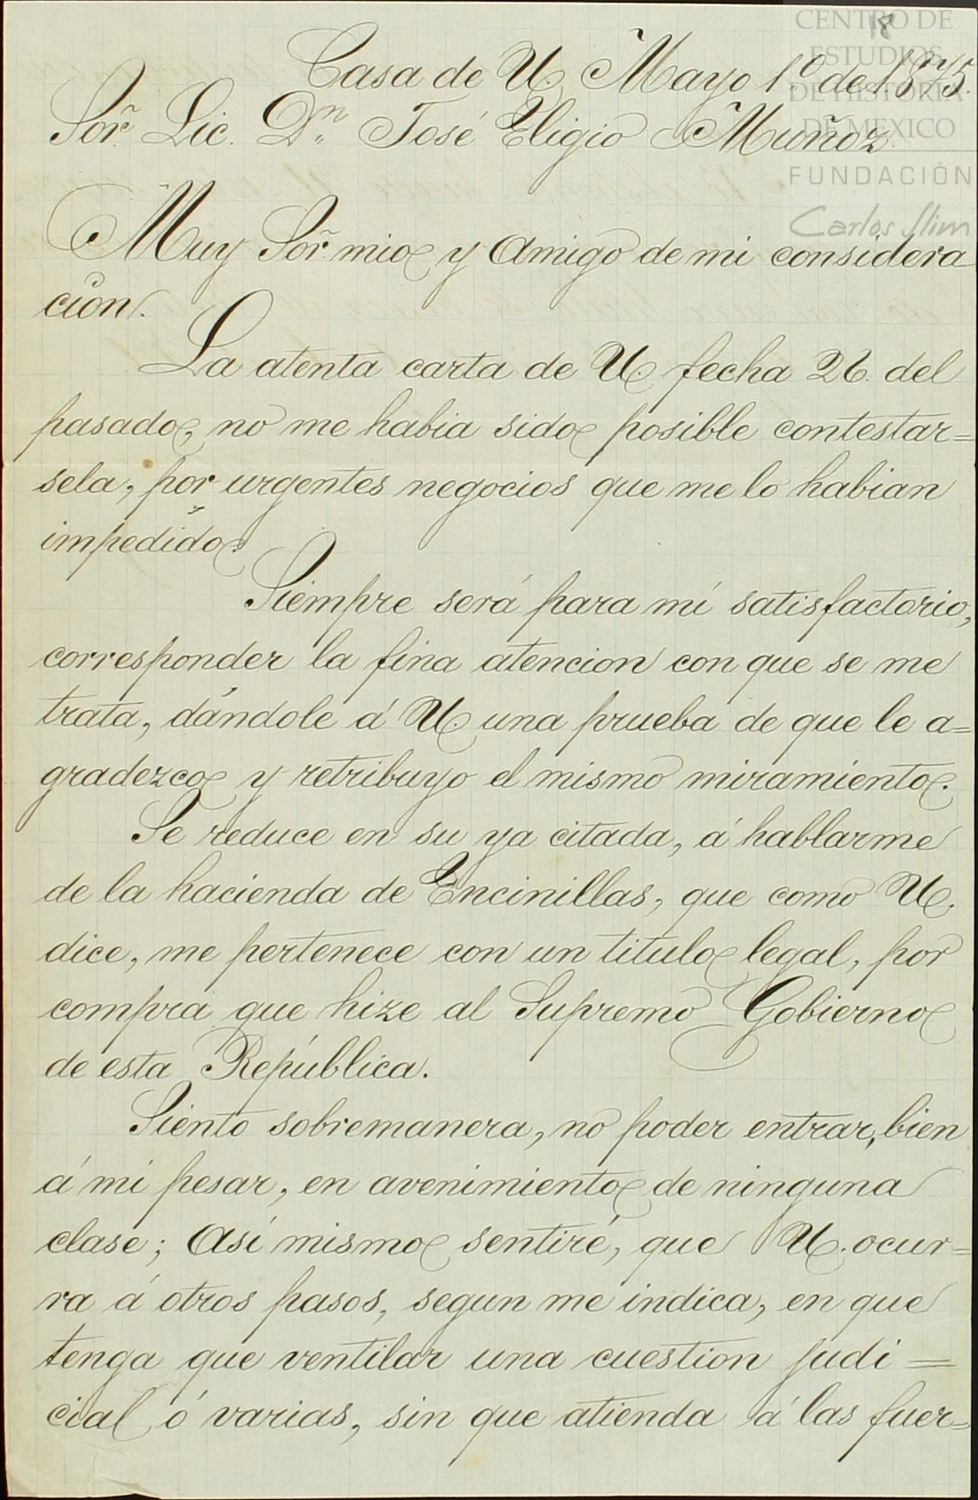 18
CENTRO DE
ESTUDIOS
DE HISTORIA
DE MEXICO
FUNDACIÓN
Carlos Slim
Casa de U. Mayo 1.º de 1875.
Sor. Lic. Dn. José Eligio Muñoz
Muy Sor. mio y Amigo de mi considera
cion.
La atenta carta de U. fecha 26. del
pasado, no me habia sido posible contestar=
sela, por urgentes negocios que me lo habian
impedido.
Siempre será para mí satisfactorio,
corresponder la fina atencion con que se me
trata, dándole á U. una prueba de que le a=
gradezco y retribuyo el mismo miramiento.
Se reduce en su ya citada, á hablarme
de la hacienda de Encinillas, que como U.
dice, me pertenece con un titulo legal, por
compra que hize al Supremo Gobierno
de esta República.
Siento sobremanera, no poder entrar, bien
á mi pesar, en avenimiento de ninguna
clase; Así mismo sentiré, que U. ocur=
ra á otros pasos, segun me indica, en que
tenga que ventilar una cuestion judi=
cial ó varias, sin que atienda á las fuer=